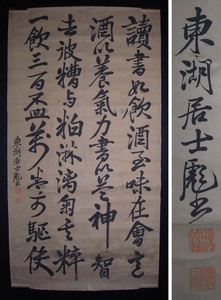 讀書如飲酒至味在會意
酒以養氣力書以益神智
去彼糟與粕淋漓氣其粹
一飲三百盃萬卷可驅使
東湖居士彪書
東湖居士彪書